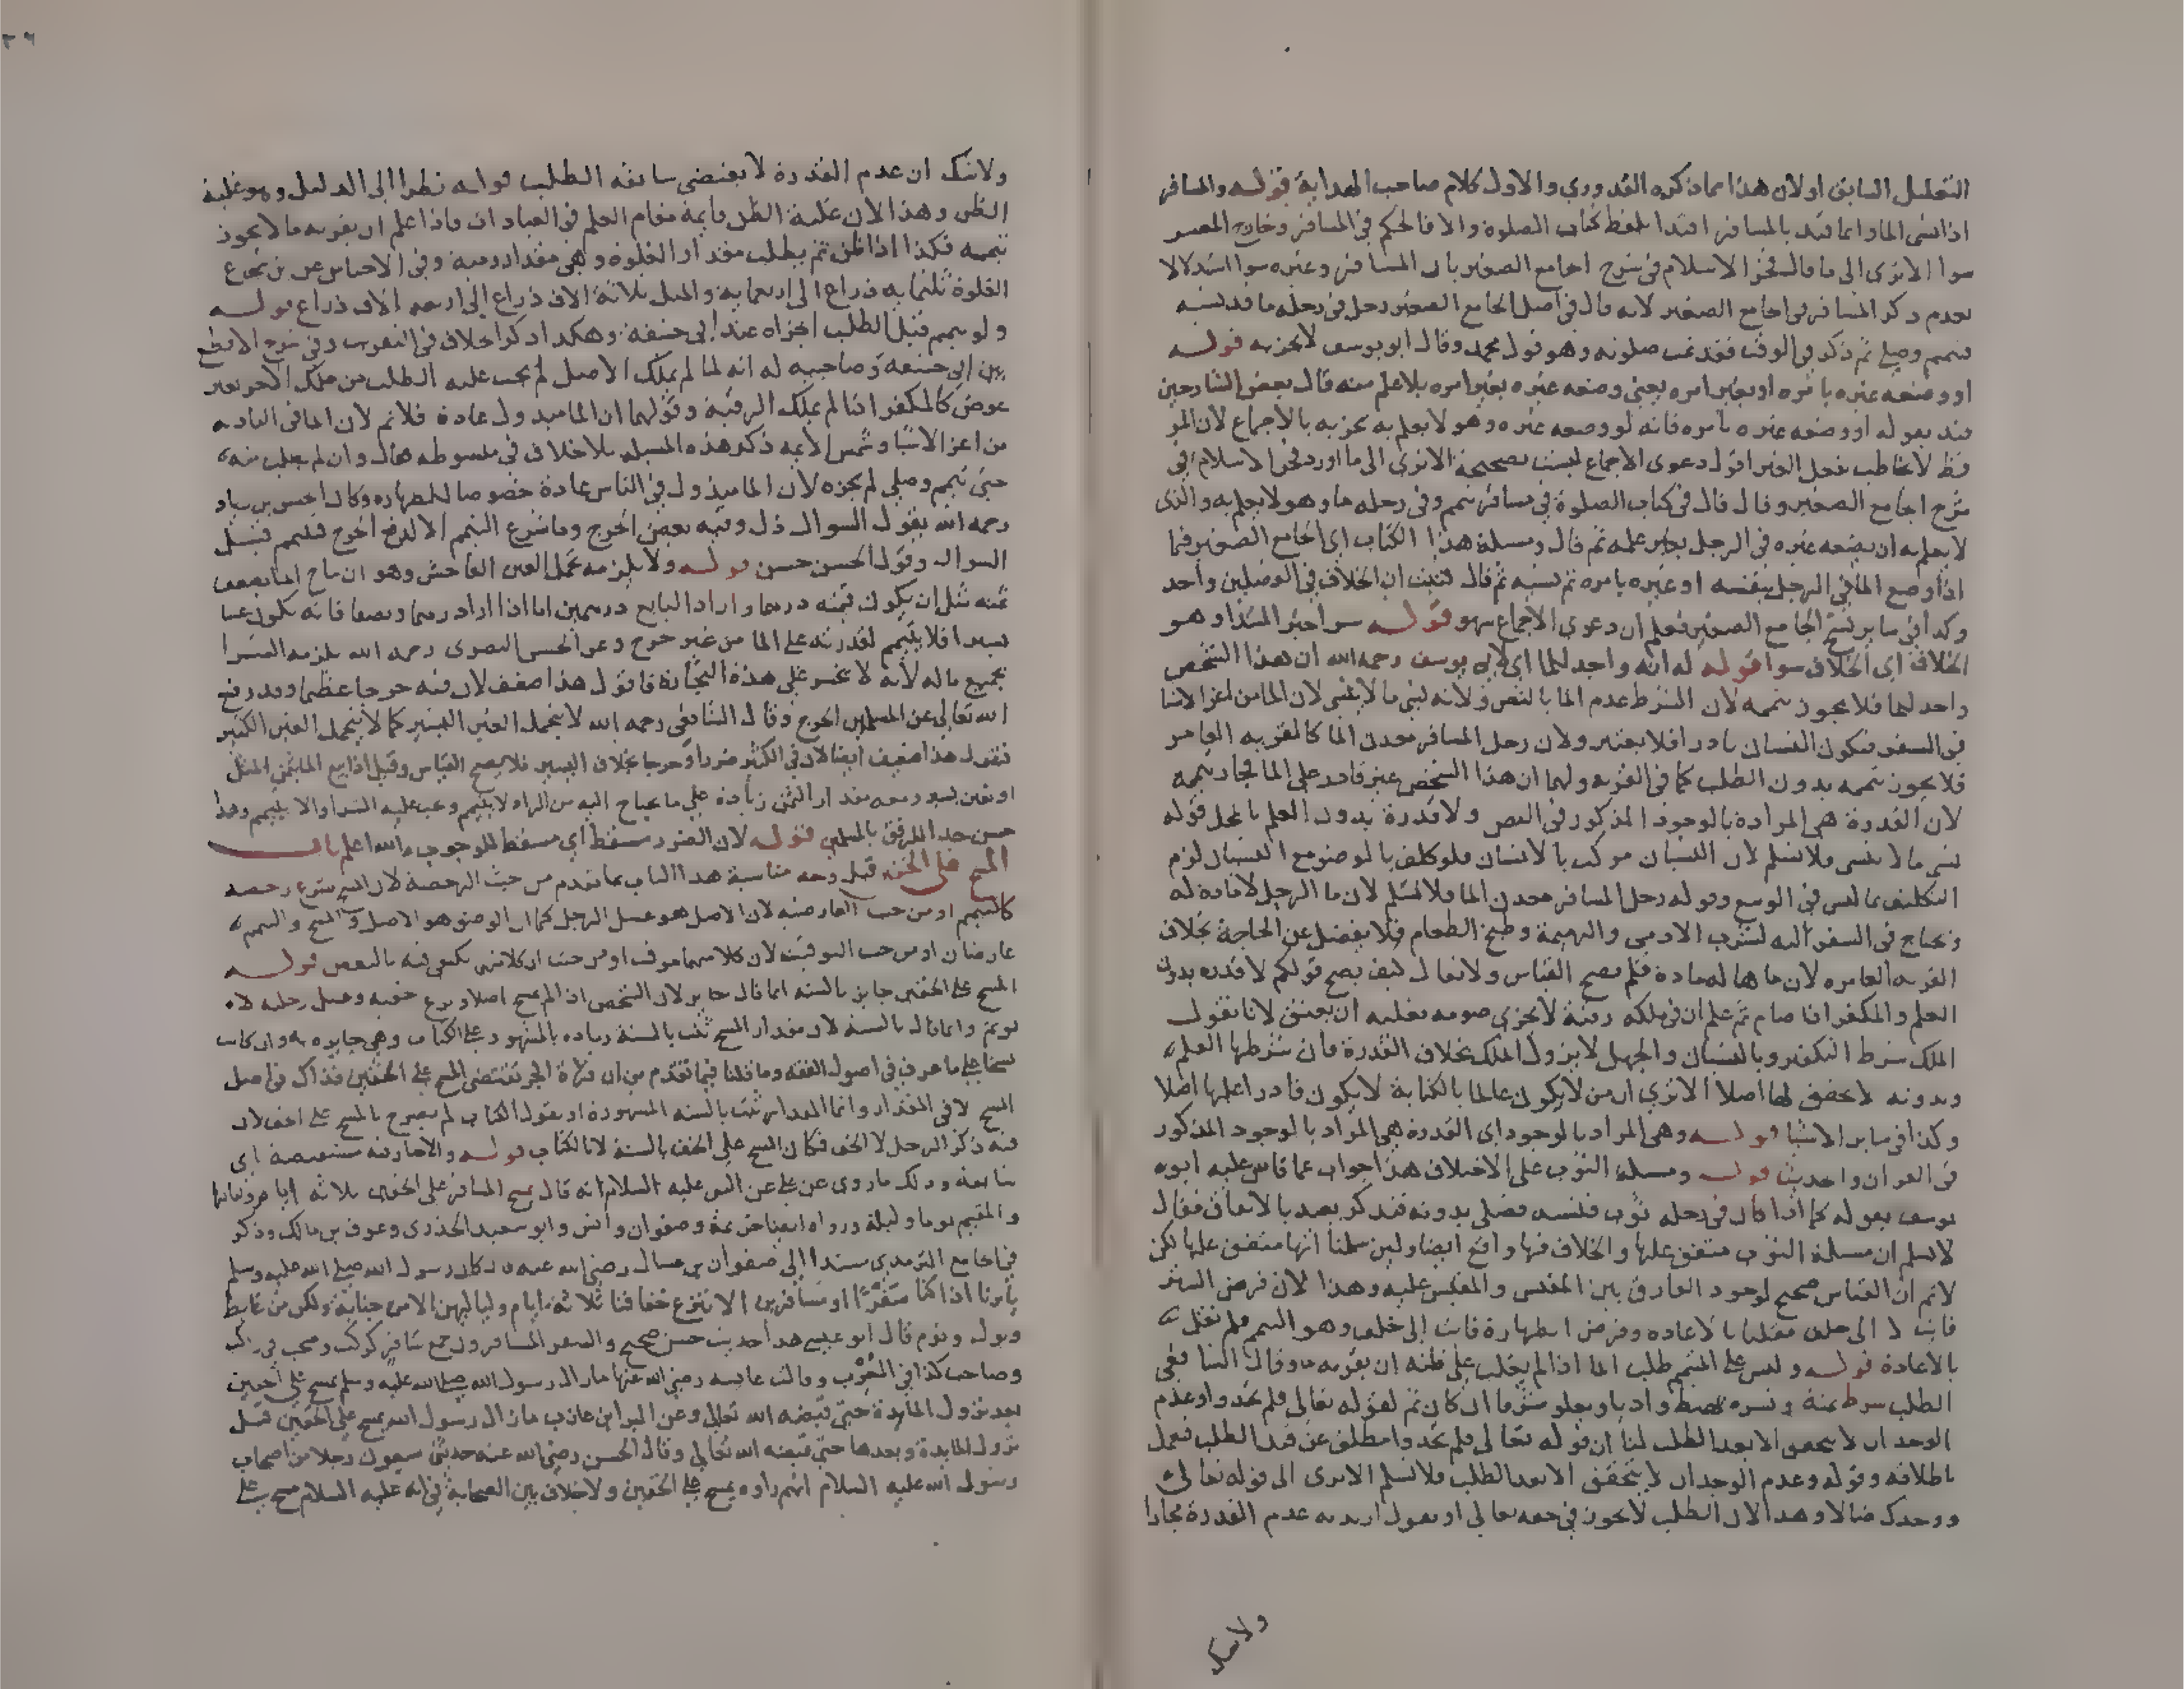 التعليل السابق اولان هذا مما ذكره القدوري والاول كلام صاحب الهداية قوله والمسافر
اذا نسي الما وانما قيد بالمسافر اقتدا بلفظ كتاب الصلوة والا فالحكم في المسافر وخارج المصر
سوا الا ترى الى ما قال فخر الاسلام في شرح الجامع الصغير بان المسافر وغيره سوا استدلالا
بعدم ذكر المسافر في الجامع الصغير لانه قال في اصل الجامع الصغير رجل في رحله ما قد نسيه
فتيمم وصلى ثم ذكر في الوقت فقد تمت صلوته وهو قول محمد وقال ابو يوسف لا يجزيه قوله
او وضعه غيره بامره او بغير امره يعني وضعه غيره بغير امره بلا علم منه قال بعض الشارحين
قيد بقوله او وضعه غيره بامره فانه لو وضعه غيره وهو لا يعلم به يجزيه بالاجماع لان المر
قط لا يخاطب بفعل الغير اقول دعوى الاجماع ليست بصحيحة الا ترى الى ما اورد فخر الاسلام في
شرح الجامع الصغير وقال قال في كتاب الصلوة في مسافر تيمم وفي رحله ما وهو لا يعلم به والذي
لا يعلم به ان يضعه غيره في الرحل بغير علمه ثم قال ومسلة هذا الكتاب اي الجامع الصغير فيما
اذا وضع الما في الرحل بنفسه او غيره بامره ثم نسيه ثم قال فثبت ان الخلاف في الفصلين واحد
وكذا في ساير نسخ الجامع الصغير فعلم ان دعوى الاجماع سهو قوله سوا خبر المبتدا وهو
الخلاف اي الخلاف سوا قوله له انه واجد للما اي لابي يوسف رحمه الله ان هذا الشخص
واجد للما فلا يجوز تيممه لان الشرط عدم الما بالنص ولانه نسي ما لا ينسى لان الما من اعز الاشيا
في السفر فيكون النسيان نادرا فلا يعتبر ولان رحل المسافر معدن الما كالقرية العامر
فلا يجوز تيممه بدون الطلب كما في القرية ولهما ان هذا الشخص غير قادر على الما فجاز تيممه
لان القدرة هي المرادة بالوجود المذكور في النص ولا قدرة بدون العلم بالمحل قوله
نسي ما لا ينسى فلا نسلم لان النسيان مركب بالانسان فلو كلف بالوضو مع النسيان لزم
التكليف بما ليس في الوسع وقوله رحل المسافر معدن الما فلا نسلم لان ما الرحل لا مادة له
ويحتاج في السفر اليه لشرب الادمي والبهيمة وطبخ الطعام فلا يفضل عن الحاجة بخلاف
القرية العامرة لان ماها له مادة فلم يصح القياس ولا يقال كيف يصح قولكم لا قدرة بدون
العلم والمكفر اذا صام ثم علم ان في ملكه رقبة لا يجزي صومه فعليه ان يعتق لانا نقول
الملك شرط التكفير وبالنسيان والجهل لا يزول الملك بخلاف القدرة فان شرطها العلم
وبدونه لا تحقق لها اصلا الا ترى ان من لا يكون عالما بالكتابة لا يكون قادرا عليها اصلا
وكذا في ساير الاشيا قوله وهي المراد بالوجود اي القدرة هي المراد بالوجود المذكور
في القران والحديث قوله ومسلة الثوب على الاختلاف هذا جواب عما قاس عليه ابو
يوسف بقوله كما اذا كان في رحله ثوب فنسيه فصلى بدونه فتذكر يعيد بالاتفاق فقال
لا نسلم ان مسلة الثوب متفق عليها والخلاف فيها واقع ايضا ولين سلمنا انها متفق عليها لكن
لا نم ان القياس صحيح لوجود الفارق بين المقيس والمقيس عليه وهذا لان فرض الستر
فات لا الى خلف فقلنا بالاعادة وفرض الطهارة فات الى خلف وهو التيمم فلم نقل
بالاعادة قوله وليس على المتيمم طلب الما اذا لم يغلب على ظنه ان بقربه ما وقال الشافعي
الطلب شرط يمنة ويسره وهبط واديا ويعلو شرفا ان كان ثم لقوله تعالى فلم تجدوا وعدم
الوجدان لا يتحقق الا بعد الطلب لنا ان قوله تعالى فلم تجدوا مطلق عن قيد الطلب فيعمل
باطلاقه وقوله وعدم الوجدان لا يتحقق الا بعد الطلب فلا نسلم الا ترى الى قوله تعالى
ووجدك ضالا وهذا لان الطلب لا يجوز في حقه تعالى او نقول اريد به عدم القدرة مجازا
ولا شك
ولا شك ان عدم القدرة لا يقتضي سابقة الطلب قوله نظرا الى الدليل وهو غلبة
الظن وهذا لان غلبة الظن قايمة مقام العلم في العبادات فاذا علم ان بقربه ما لا يجوز
تيممه فكذا اذا ظن ثم يطلب مقدار الغلوة وهي مقدار رمية وفي الاجناس عن بن شجاع
الغلوة ثلثماية ذراع الى اربعماية والميل ثلاثة الاف ذراع الى اربعة الاف ذراع قوله
ولو تيمم قبل الطلب اجزاه عند ابي حنيفة وهكذا ذكر الخلاف في التقريب وفي شرح الاقطع
بين ابي حنيفة وصاحبيه له انه لما لم يملك الاصل لم يجب عليه الطلب من ملك الاخر بغير
عوض كالمكفر اذا لم يملك الرقبة وقولهما ان الما مبذول عادة فلا نم لان الما في البادية
من اعز الاشيا وشمس الايمة ذكر هذه المسلة بلا خلاف في مبسوطه فقال وان لم يطلب منه
حتى تيمم وصلى لم يجزه لان الما مبذول في الناس عادة خصوصا للطهارة وكان الحسن بن زياد
رحمه الله يقول السوال ذل وفيه بعض الحرج وما شرع التيمم الا لدفع الحرج فتيمم قبل
السوال وقول الحسن حسن قوله ولا يلزمه تحمل الغبن الفاحش وهو ان يباع الما بضعف
ثمنه مثل ان يكون قيمته درهما واراد البايع درهمين اما اذا اراد درهما ونصفا فانه يكون غبنا
يسيرا فلا يتيمم لقدرته على الما من غير حرج وعن الحسن البصري رحمه الله يلزمه الشرا
بجميع ماله لانه لا يخسر على هذه التجارة فاقول هذا ضعف لان فيه حرجا عظيما وقد رفع
الله تعالى عن المسلمين الحرج وقال الشافعي رحمه الله لا يتحمل الغبن اليسير كما لا يتحمل الغبن الكثير
فنقول هذا ضعيف ايضا لان في الكثير ضررا وحرجا بخلاف اليسير فلا يصح القياس وقيل اذا بيع الما بثمن المثل
او بغبن يسير ومعه مقدار الثمن زيادة على ما يحتاج اليه من الزاد لا يتيمم وجب عليه الشرا والا يتيمم وهذا
حسن جدا للرفق بالمسلمين قوله لان الضرر مسقط اي مسقط للوجوب والله اعلم باب
المسح على الخفين قيل وجه مناسبة هذا الباب بما تقدم من حيث الرخصة لان المسح شرع رخصة
كالتيمم او من حيث العارضية لان الاصل هو غسل الرجل كما ان الوضو هو الاصل والمسح والتيمم
عارضان او من حيث التوقيت لان كلا منهما موقت او من حيث ان كلا منهما يكتفى فيه بالبعض قوله
المسح على الخفين جايز بالسنة انما قال جايز لان الشخص اذا لم يمسح اصلا ونزع خفيه وغسل رجليه لا
يوثم وانما قال بالسنة لان مقدار المسح ثبت بالسنة زيادة بالمشهور على الكتاب وهي جايزة وان كانت
نسخا على ما عرف في اصول الفقه وما قلنا فيما تقدم من ان قراة الجر تقتضي المسح على الخفين فذاك في اصل
المسح لا في المقدار وانما المقدار ثبت بالسنة المشهورة او نقول الكتاب لم يصرح بالمسح على الخف لان
فيه ذكر الرجل لا الخف فكان المسح على الخف بالسنة لا بالكتاب قوله والاخبار فيه مستفيضة اي
شايعة وذلك ما روي عن علي عن النبي عليه السلام انه قال يمسح المسافر على الخفين ثلاثة ايام ولياليها
والمقيم يوما وليلة ورواه ايضا خزيمة وصفوان وانس وابو سعيد الخدري وعوف بن مالك وذكر
في جامع الترمذي مسندا الى صفوان بن عسال رضي الله عنه قال كان رسول الله صلى الله عليه وسلم
يامرنا اذا كنا سفرا او مسافرين الا ننزع خفافنا ثلاثة ايام ولياليهن الا من جنابة ولكن من غايط
وبول ونوم قال ابو عيسى هذا حديث حسن صحيح والسفر المسافرون جمع سافر كركب وصحب في راكب
وصاحب كذا في المغرب وقالت عايشة رضي الله عنها ما زال رسول الله صلى الله عليه وسلم يمسح على الخفين
بعد نزول المايدة حتى قبضه الله تعالى وعن البرا ابن عازب ما زال رسول الله يمسح على الخفين قبل
نزول المايدة وبعدها حتى قبضه الله تعالى وقال الحسن رضي الله عنه حدثني سبعون رجلا من اصحاب
رسول الله عليه السلام انهم راوه يمسح على الخفين ولا خلاف بين الصحابة في انه عليه السلام مسح على